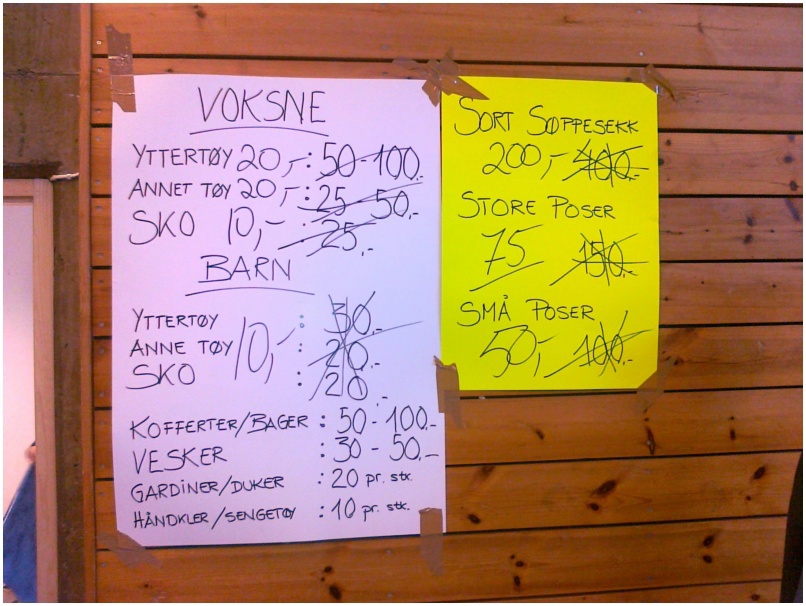 VOKSNE
YTTERTØY 20,-: 50-100,-
ANNET TØY 20,-: 25-50,-
SKO 10,-: 25,-
BARN
YTTERTØY : 30,-
ANNE TØY 10,- : 20,-
SKO : 20,-
KOFFERTER/BAGER : 50-100,-
VESKER : 30-50,-
GARDINER/DUKER : 20 pr. stk.
HÅNDKLER/SENGETØY : 10 pr. stk.
SORT SØPPESEKK
200,- 400,-
STORE POSER
75 150,-
SMÅ POSER
50,- 100,-